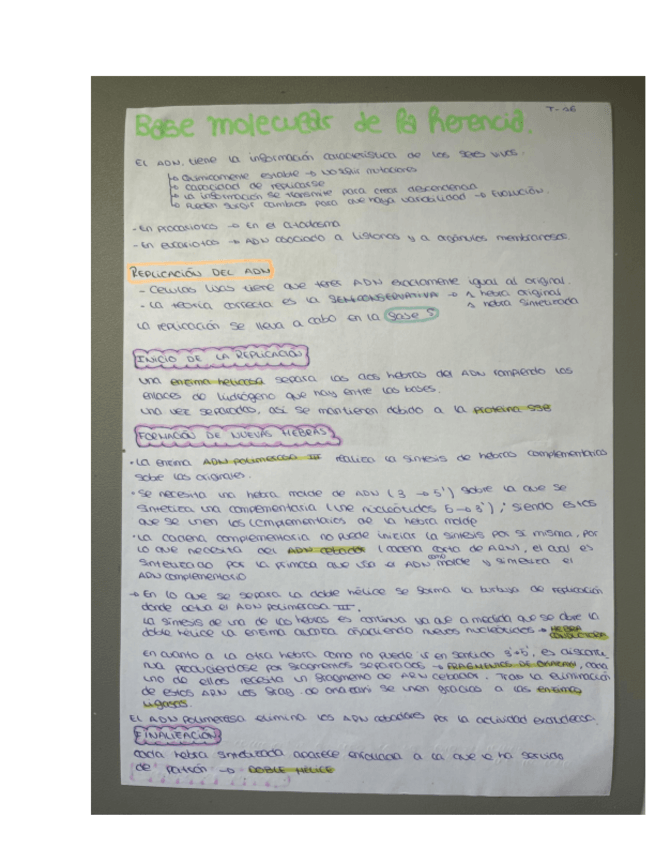 T-16
Base molecular de la herencia.
El ADN, tiene la información característica de los seres vivos.
Químicamente estable → no sufrir mutaciones
capacidad de replicarse
la información se transmite para crear descendencia
Pueden surgir cambios para que haya variabilidad → Evolución.
- En procariotas → En el citoplasma
- En eucariotas → ADN asociado a histonas y a orgánulos membranosos.
REPLICACIÓN DEL ADN
- Células hijas tiene que tener ADN exactamente igual al original.
- La teoría correcta es la SEMICONSERVATIVA → 1 hebra original
1 hebra sintetizada
La replicación se lleva a cabo en la fase S
INICIO DE LA REPLICACIÓN
Una enzima helicasa separa las dos hebras del ADN rompiendo los
enlaces de hidrógeno que hay entre las bases.
Una vez separadas, así se mantienen debido a la proteína SSB
FORMACIÓN DE NUEVAS HEBRAS
• La enzima ADN polimerasa III realiza la síntesis de hebras complementarias
sobre las originales.
• Se necesita una hebra molde de ADN (3 → 5') sobre la que se
sintetiza una complementaria (une nucleótidos 5 → 3'), siendo estos
que se unen los complementarios de la hebra molde
• La cadena complementaria no puede iniciar la síntesis por sí misma, por
lo que necesita del ADN cebador (cadena corta de ARN), el cual es
sintetizado por la primasa que usa el ADN como molde y sintetiza el
ADN complementario
→ En lo que se separa la doble hélice se forma la burbuja de replicación
donde actúa el ADN polimerasa III.
La síntesis de una de las hebras es continua ya que a medida que se abre la
doble hélice la enzima avanza añadiendo nuevos nucleótidos → HEBRA
CONDUCTORA
En cuanto a la otra hebra como no puede ir en sentido 3'→5', es discontí
nua produciéndose por fragmentos separados → FRAGMENTOS DE OKAZAKI, cada
uno de ellos necesita un fragmento de ARN cebador. Tras la eliminación
de estos ARN los frag. de okazaki se unen gracias a las enzimas
ligasas.
El ADN polimerasa elimina los ADN cebadores por la actividad exonucleasa.
FINALIZACIÓN
Cada hebra sintetizada aparece enrollada a la que le ha servido
de patrón → DOBLE HÉLICE